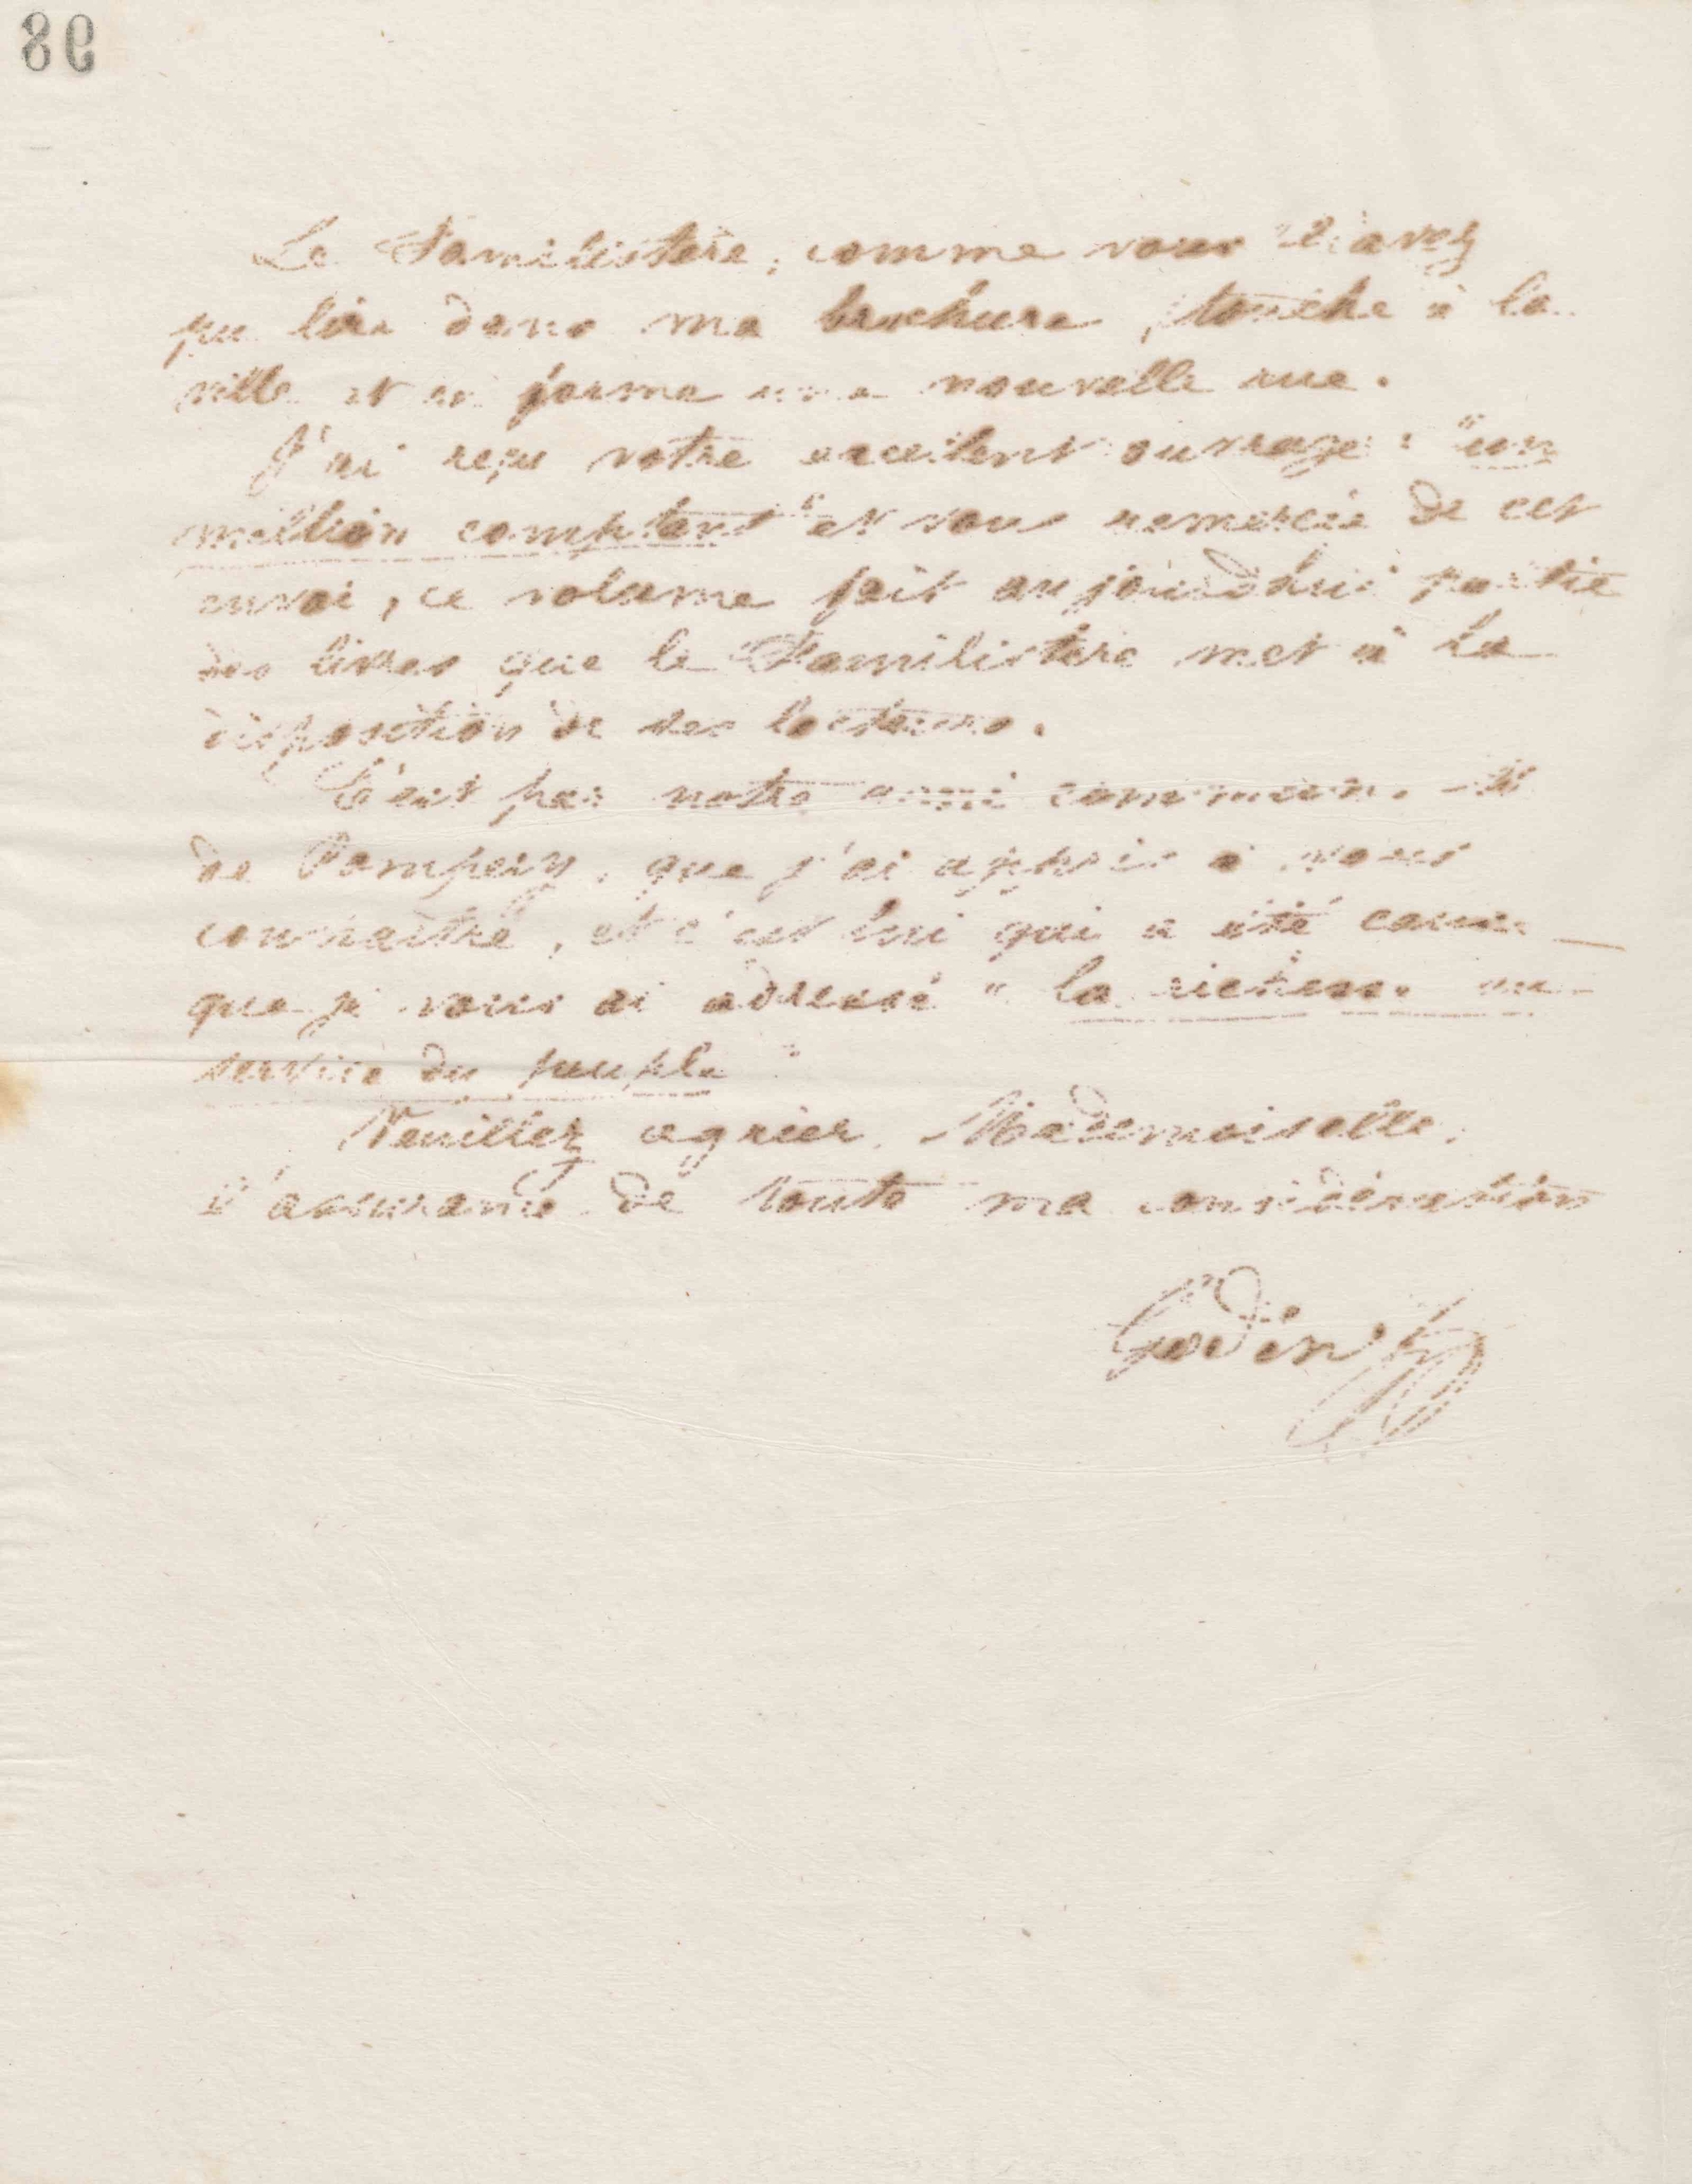 98
Le Familistère, comme vous l'avez
pu lire dans ma brochure, touche à la
ville et en forme une nouvelle rue.
J'ai reçu votre excellent ouvrage : "un
million comptant" et vous remercie de cet
envoi, ce volume fait aujourd'hui partie
des livres que le Familistère met à la
disposition de ses lecteurs.
C'est par notre ami commun, M
de Pompery, que j'ai appris à vous
connaître, et c'est lui qui a été cause
que je vous ai adressé "la richesse au
service du peuple"
Veuillez agréer, Mademoiselle,
l'assurance de toute ma considération
Godin